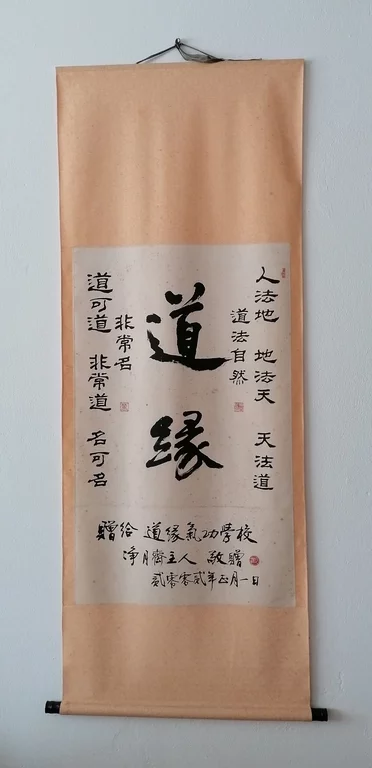 人法地 地法天 天法道
道法自然
道
缘
道可道 非常道 名可名
非常名
贈给 道缘氣功學校
净月齋主人 敬贈
贰零零贰年正月一日